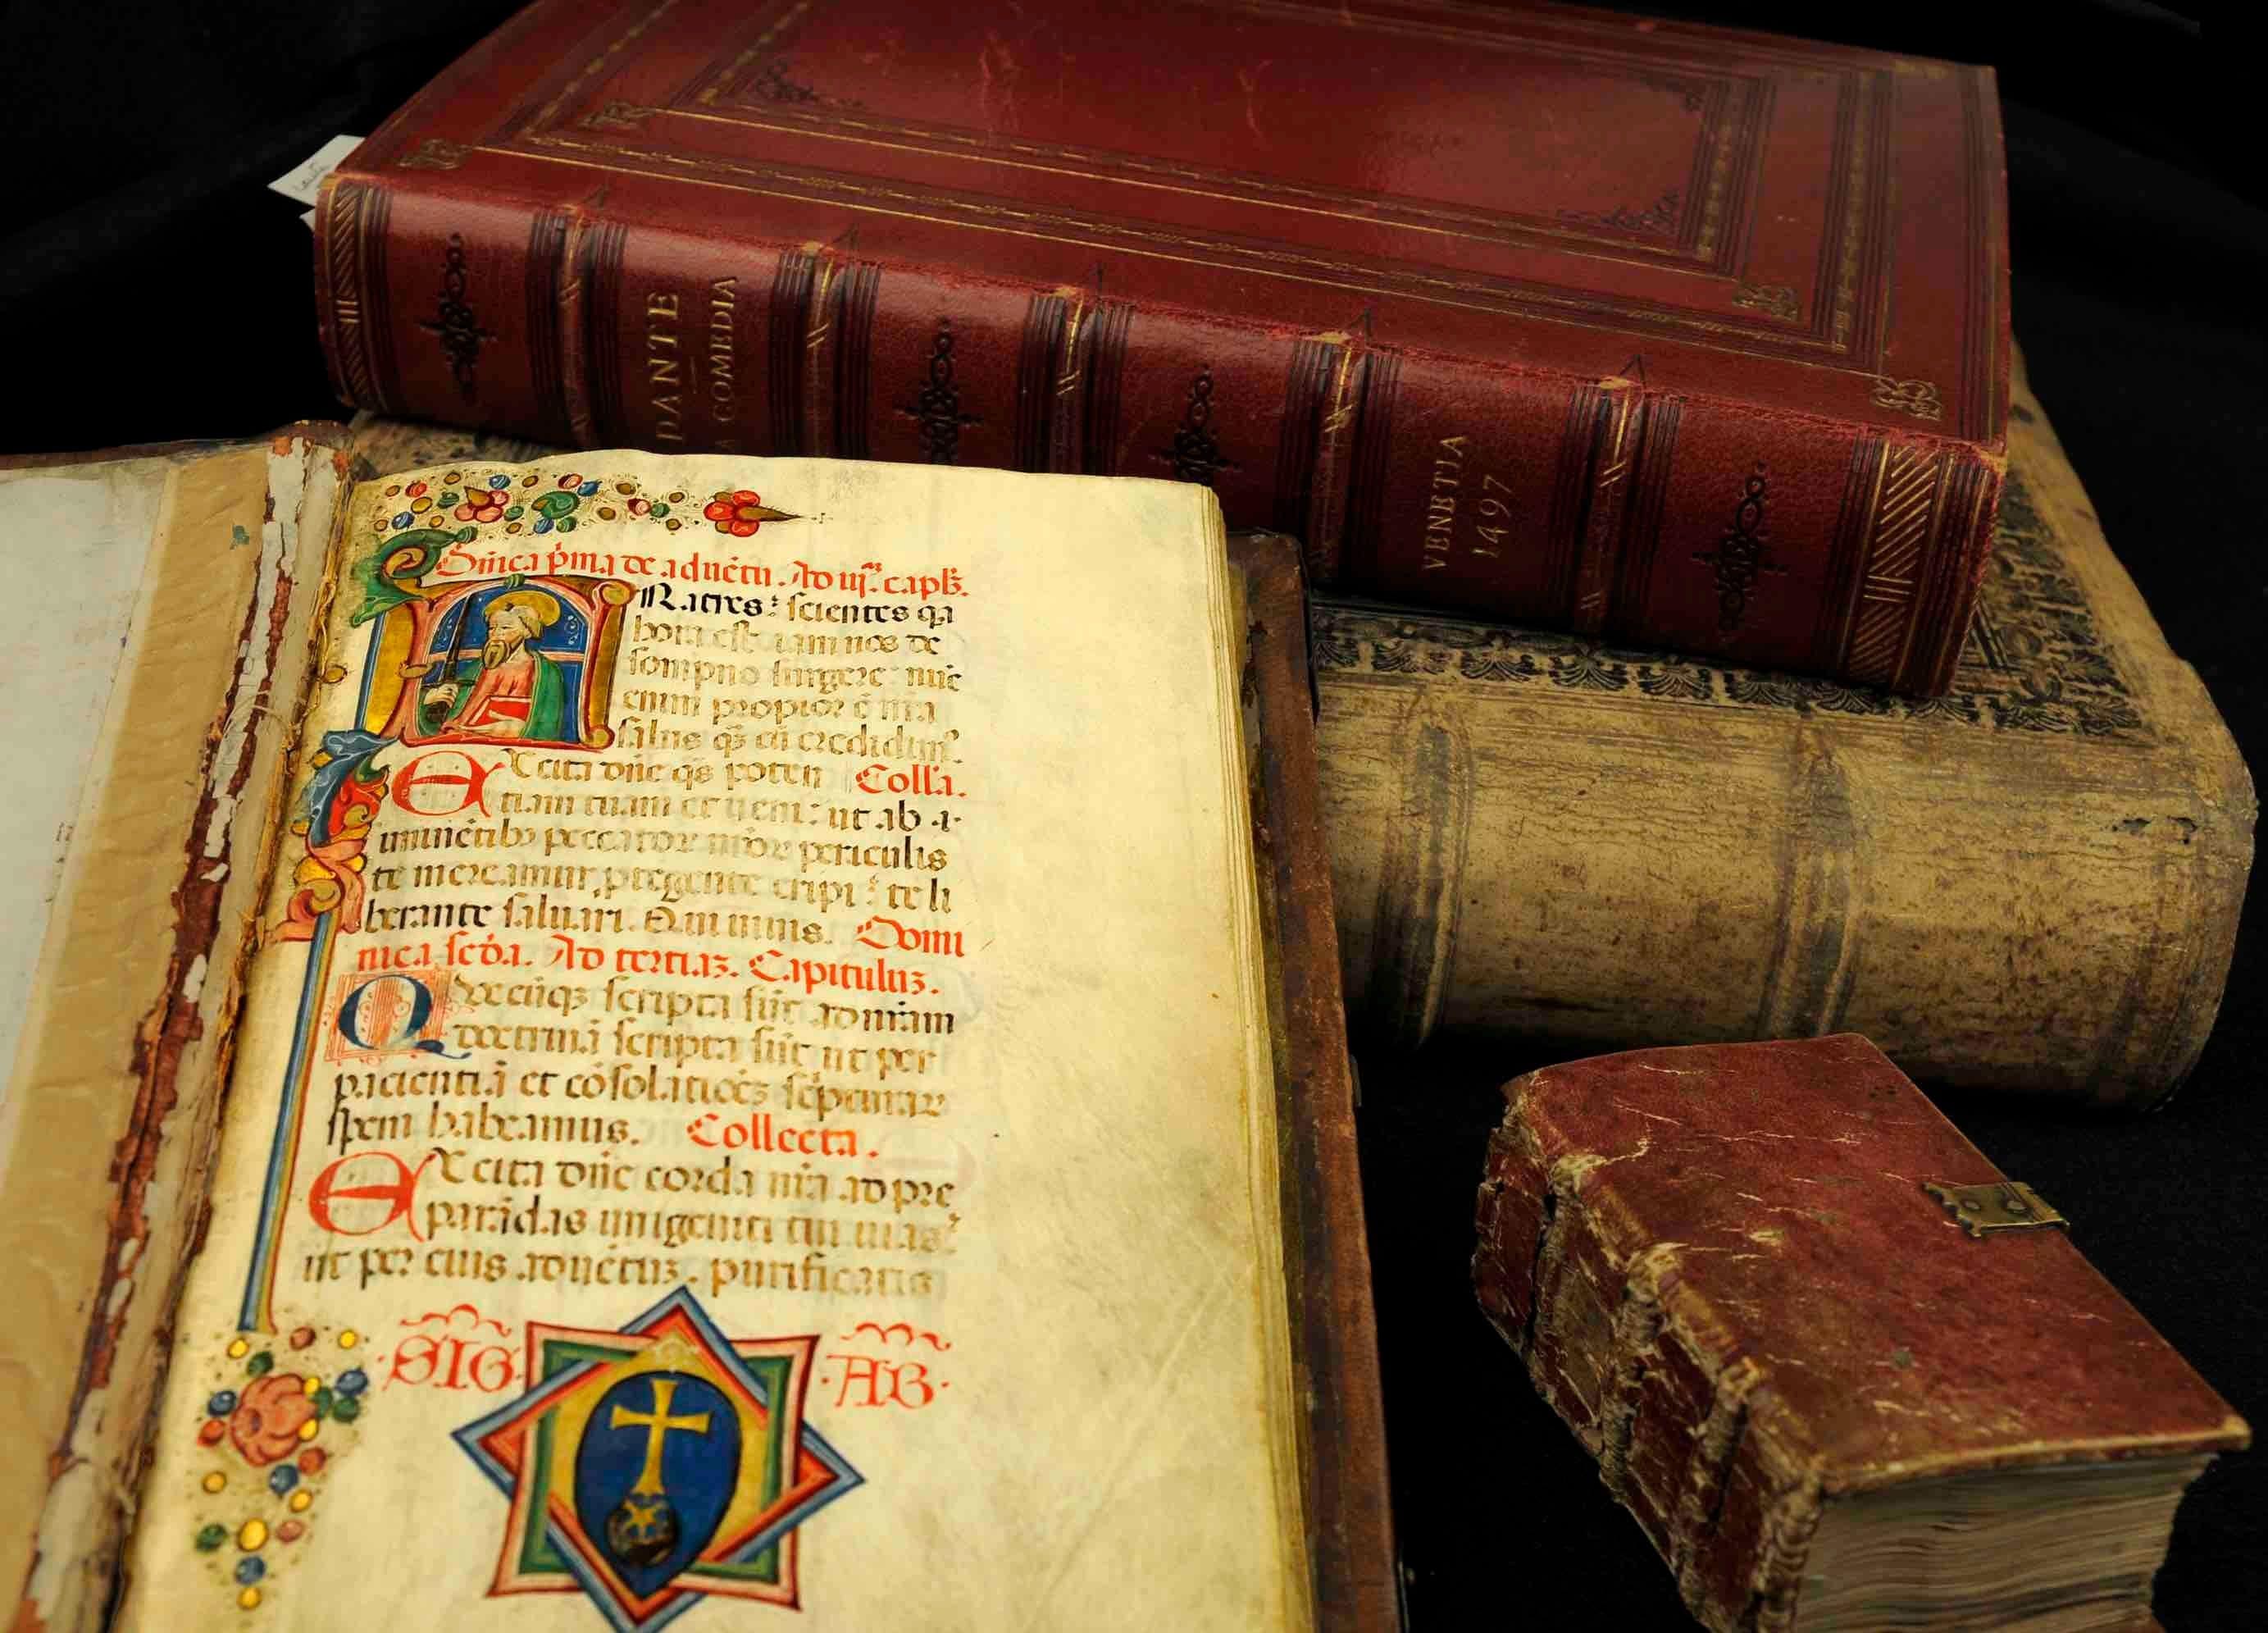 DANTE
A COMEDIA
VENETIA
1497
Dn̄ica p̄ma de aduētu. Ad iij.ᵃᵐ capl̄.
Ratres: scientes qa
hora est iam nos de
sompno surgere: nūc
enim propior ē nr̄a
salus qꝫ cū credidimꝰ.
EXcita dn̄e qs̄ poten Coll'a.
tiam tuam et ueni: ut ab i
minētibꝰ peccatoꝝ nr̄oꝝ periculis
te mereamur, ꝓtegente eripi: te li
berante saluari. Qui uiuis. Domi
nica scd̄a. Ad tertiaꝫ. Capituluꝫ.
Qvecūqꝫ scripta sūt ad nr̄am
doctrinā scripta sūt ut per
pacientiā et cōsolationeꝫ sc̄pturaꝝ
spem habeamus. Collecta.
EXcita dn̄e corda nr̄a ad pre
parādas unigeniti tui uias:
ut per eius aduētuꝫ. purificatis
·SIG· ·AB·